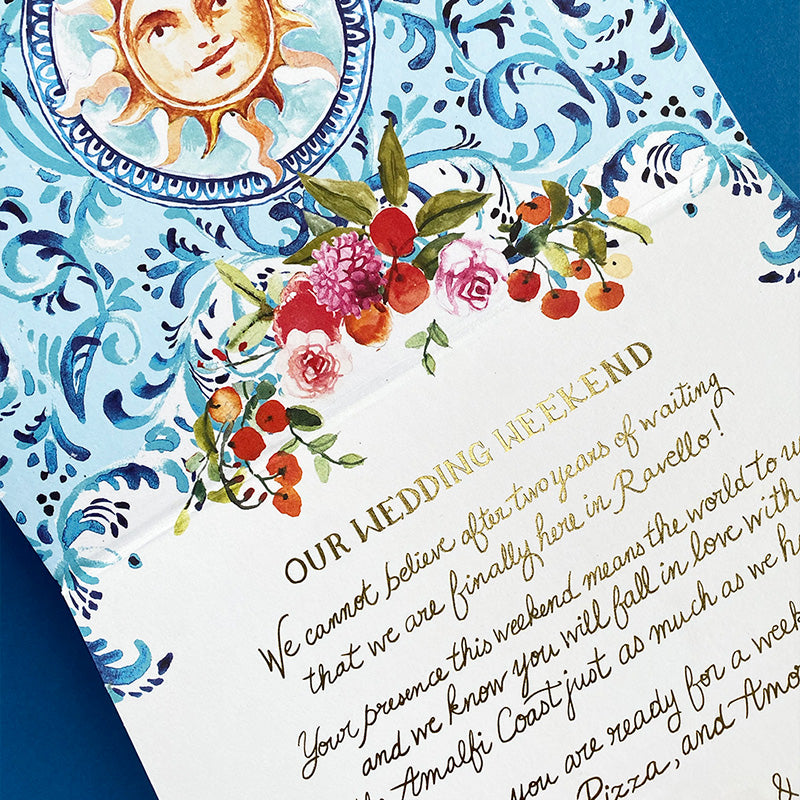 OUR WEDDING WEEKEND
We cannot believe after two years of waiting
that we are finally here in Ravello!
Your presence this weekend means the world to
and we know you will fall in love with
Amalfi Coast just as much as we
you are ready for a
Pizza, and
&